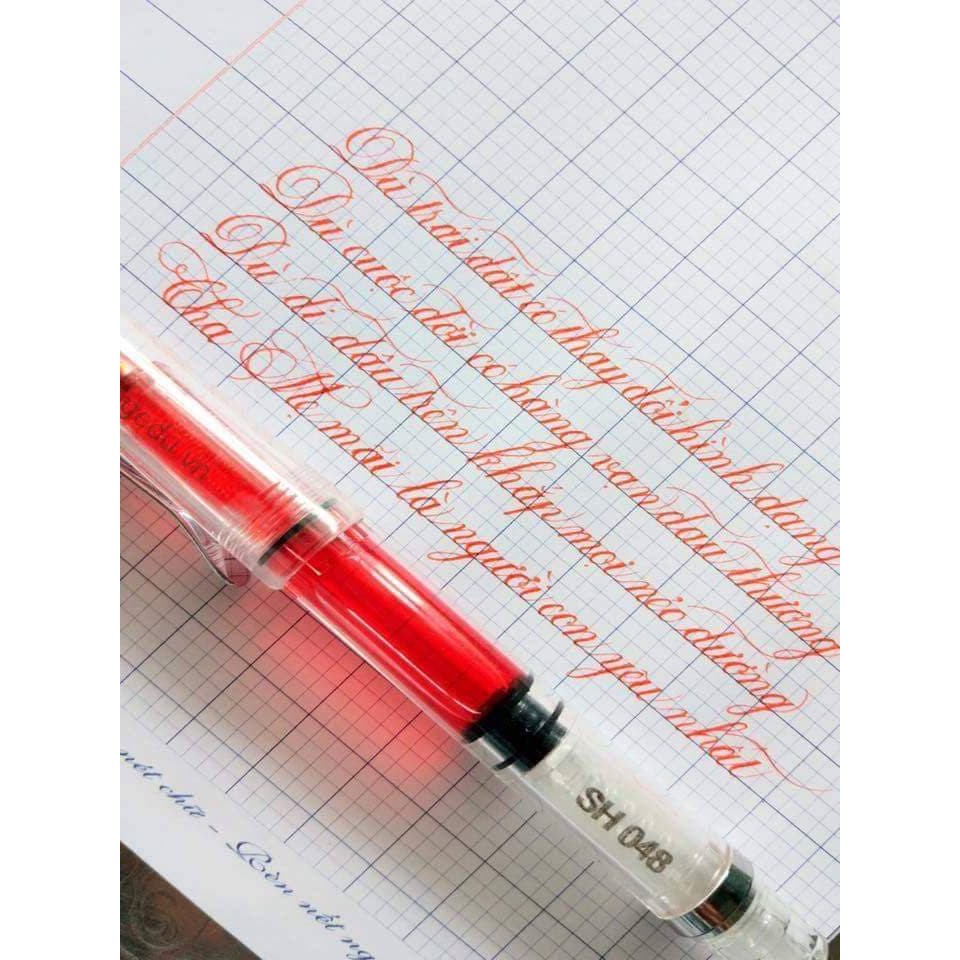 Dù trái đất có thay đổi hình dạng
Dù cuộc đời có hàng vạn đau thương
Dù đi đâu trên khắp mọi nẻo đường
Cha Mẹ mãi là người con yêu nhất
gedu.vn
SH 048
nét chữ - Rèn nết ng